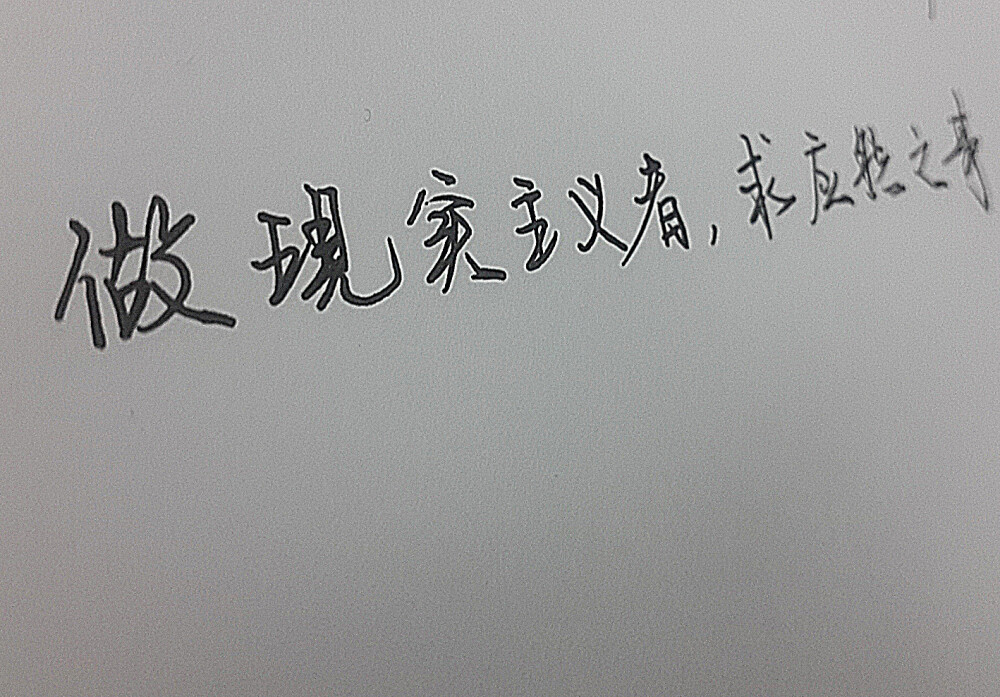 做现实主义者，求应然之事